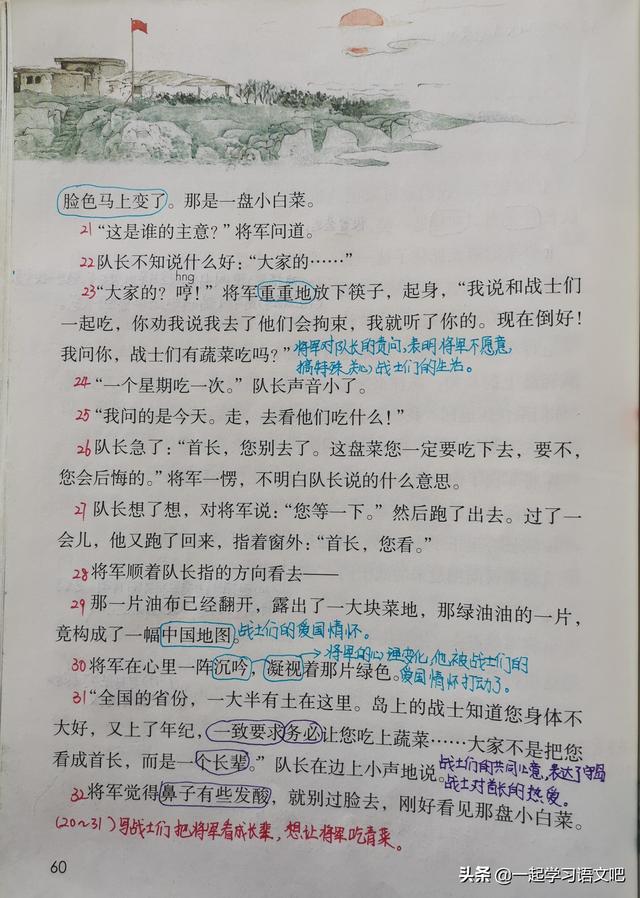 脸色马上变了。那是一盘小白菜。
21“这是谁的主意?”将军问道。
22队长不知说什么好:“大家的……”
hng
23“大家的?哼!”将军重重地放下筷子,起身,“我说和战士们
一起吃,你劝我说我去了他们会拘束,我就听了你的。现在倒好!
我问你,战士们有蔬菜吃吗?”将军对队长的责问,表明将军不愿意
搞特殊,关心战士们的生活。
24“一个星期吃一次。”队长声音小了。
25“我问的是今天。走,去看他们吃什么!”
26队长急了:“首长,您别去了。这盘菜您一定要吃下去,要不,
您会后悔的。”将军一愣,不明白队长说的什么意思。
27队长想了想,对将军说:“您等一下。”然后跑了出去。过了一
会儿,他又跑了回来,指着窗外:“首长,您看。”
28将军顺着队长指的方向看去——
29那一片油布已经翻开,露出了一大块菜地,那绿油油的一片,
竟构成了一幅中国地图。战士们的爱国情怀。
将军的心理变化,他被战士们的
30将军在心里一阵沉吟,凝视着那片绿色。爱国情怀打动了。
31“全国的省份,一大半有土在这里。岛上的战士知道您身体不
大好,又上了年纪,一致要求务必让您吃上蔬菜……大家不是把您
看成首长,而是一个长辈。”队长在边上小声地说。战士们的共同心意,表达了守岛
战士对首长的热爱。
32将军觉得鼻子有些发酸,就别过脸去,刚好看见那盘小白菜。
(20~31)写战士们把将军看成长辈,想让将军吃青菜。
60
头条 @一起学习语文吧